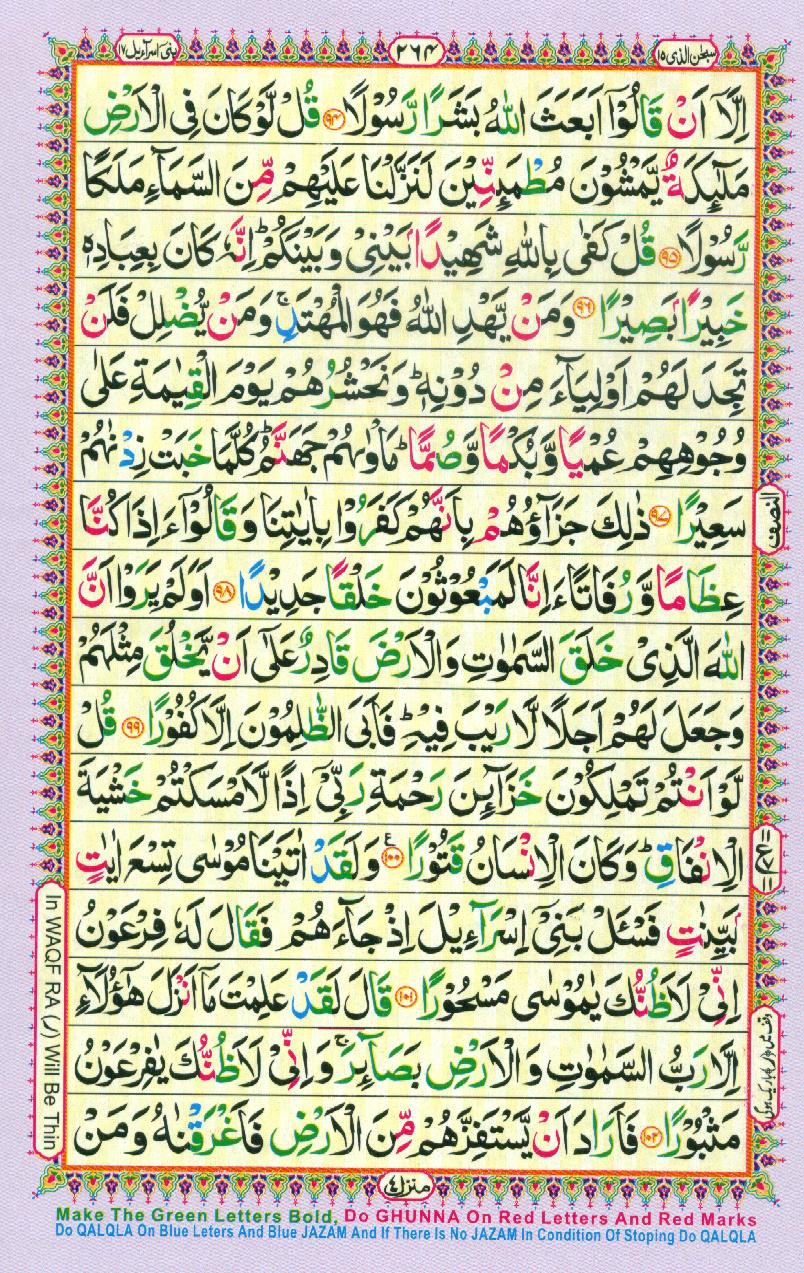 سبحٰن الذی ۱۵
۲۶۴
بنیٓ اسرآءیل ۱۷
اِلَّاۤ اَنْ قَالُوْۤا اَبَعَثَ اللّٰهُ بَشَرًا رَّسُوْلًا ﴿۹۴﴾ قُلْ لَّوْ كَانَ فِی الْاَرْضِ
مَلٰٓىِٕكَةٌ یَّمْشُوْنَ مُطْمَىِٕنِّیْنَ لَنَزَّلْنَا عَلَیْهِمْ مِّنَ السَّمَآءِ مَلَكًا
رَّسُوْلًا ﴿۹۵﴾ قُلْ كَفٰی بِاللّٰهِ شَهِیْدًۢا بَیْنِیْ وَبَیْنَكُمْؕ اِنَّهٗ كَانَ بِعِبَادِهٖ
خَبِیْرًۢا بَصِیْرًا ﴿۹۶﴾ وَمَنْ یَّهْدِ اللّٰهُ فَهُوَ الْمُهْتَدِۚ وَمَنْ یُّضْلِلْ فَلَنْ
تَجِدَ لَهُمْ اَوْلِیَآءَ مِنْ دُوْنِهٖؕ وَنَحْشُرُهُمْ یَوْمَ الْقِیٰمَةِ عَلٰی
وُجُوْهِهِمْ عُمْیًا وَّبُكْمًا وَّصُمًّاؕ مَاْوٰىهُمْ جَهَنَّمُؕ كُلَّمَا خَبَتْ زِدْنٰهُمْ
سَعِیْرًا ﴿۹۷﴾ ذٰلِكَ جَزَآؤُهُمْ بِاَنَّهُمْ كَفَرُوْا بِاٰیٰتِنَا وَقَالُوْۤا ءَاِذَا كُنَّا
النصف
عِظَامًا وَّرُفَاتًا ءَاِنَّا لَمَبْعُوْثُوْنَ خَلْقًا جَدِیْدًا ﴿۹۸﴾ اَوَلَمْ یَرَوْا اَنَّ
اللّٰهَ الَّذِیْ خَلَقَ السَّمٰوٰتِ وَالْاَرْضَ قَادِرٌ عَلٰۤی اَنْ یَّخْلُقَ مِثْلَهُمْ
وَجَعَلَ لَهُمْ اَجَلًا لَّا رَیْبَ فِیْهِؕ فَاَبَی الظّٰلِمُوْنَ اِلَّا كُفُوْرًا ﴿۹۹﴾ قُلْ
لَّوْ اَنْتُمْ تَمْلِكُوْنَ خَزَآىِٕنَ رَحْمَةِ رَبِّیْۤ اِذًا لَّاَمْسَكْتُمْ خَشْیَةَ
الْاِنْفَاقِؕ وَكَانَ الْاِنْسَانُ قَتُوْرًا ﴿۱۰۰﴾ وَلَقَدْ اٰتَیْنَا مُوْسٰی تِسْعَ اٰیٰتٍۭ
بَیِّنٰتٍ فَسْـَٔلْ بَنِیْۤ اِسْرَآءِیْلَ اِذْ جَآءَهُمْ فَقَالَ لَهٗ فِرْعَوْنُ
اِنِّیْ لَاَظُنُّكَ یٰمُوْسٰی مَسْحُوْرًا ﴿۱۰۱﴾ قَالَ لَقَدْ عَلِمْتَ مَاۤ اَنْزَلَ هٰۤؤُلَآءِ
اِلَّا رَبُّ السَّمٰوٰتِ وَالْاَرْضِ بَصَآىِٕرَۚ وَاِنِّیْ لَاَظُنُّكَ یٰفِرْعَوْنُ
مَثْبُوْرًا ﴿۱۰۲﴾ فَاَرَادَ اَنْ یَّسْتَفِزَّهُمْ مِّنَ الْاَرْضِ فَاَغْرَقْنٰهُ وَمَنْ
In WAQF RA (ر) Will Be Thin
منزل ۴
Make The Green Letters Bold, Do GHUNNA On Red Letters And Red Marks
Do QALQLA On Blue Leters And Blue JAZAM And If There Is No JAZAM In Condition Of Stoping Do QALQLA